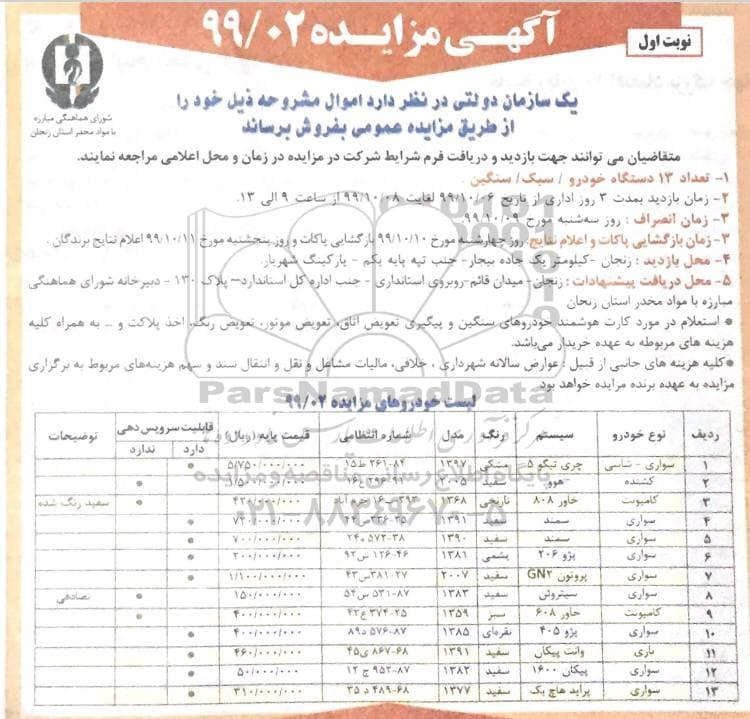 آگهی مزایده ۹۹/۰۲
نوبت اول
شورای هماهنگی مبارزه
با مواد مخدر استان زنجان
یک سازمان دولتی در نظر دارد اموال مشروحه ذیل خود را
از طریق مزایده عمومی بفروش برساند
متقاضیان می توانند جهت بازدید و دریافت فرم شرایط شرکت در مزایده در زمان و محل اعلامی مراجعه نمایند.
۱- تعداد ۱۳ دستگاه خودرو / سبک/ سنگین
۲- زمان بازدید بمدت ۳ روز اداری از تاریخ ۹۹/۱۰/۰۶ لغایت ۹۹/۱۰/۰۸ از ساعت ۹ الی ۱۳.
۳- زمان انصراف : روز سه‌شنبه مورخ ۹۹/۱۰/۰۹.
۳- زمان بازگشایی پاکات و اعلام نتایج: روز چهارشنبه مورخ ۹۹/۱۰/۱۰ بازگشایی پاکات و روز پنجشنبه مورخ ۹۹/۱۰/۱۱ اعلام نتایج برندگان .
۴- محل بازدید : زنجان -کیلومتر یک جاده بیجار- جنب تپه پایه یکم - پارکینگ شهریار.
۵- محل دریافت پیشنهادات : زنجان-میدان قائم-روبروی استانداری - جنب اداره کل استاندارد- پلاک ۱۳۰ - دبیرخانه شورای هماهنگی
مبارزه با مواد مخدر استان زنجان
* استعلام در مورد کارت هوشمند خودروهای سنگین و پیگیری تعویض اتاق، تعویض موتور، تعویض رنگ، اخذ پلاکت و ... به همراه کلیه
هزینه های مربوطه به عهده خریدار می‌باشد.
*کلیه هزینه های جانبی از قبیل : عوارض سالانه شهرداری ، خلافی، مالیات مشاغل و نقل و انتقال سند و سهم هزینه‌های مربوط به برگزاری
مزایده به عهده برنده مزایده خواهد بود
ParsNamadData
لیست خودروهای مزایده ۹۹/۰۲
ردیف نوع خودرو سیستم رنگ مدل شماره انتظامی قیمت پایه (ریال) قابلیت سرویس دهی دارد ندارد توضیحات
۱ سواری - شاسی چری تیگو ۵ مشکی ۱۳۹۷ ۸۴-۲۶۱ط۱۵ ۵/۷۵۰/۰۰۰/۰۰۰
۲ کشنده هوو سفید ۲۰۰۵
۳ کامیونت خاور ۸۰۸ نارنجی ۱۳۶۸ ۴۲۰/۰۰۰/۰۰۰ سفید رنگ شده
۴ سواری سمند سفید ۱۳۹۱ ۷۲۰/۰۰۰/۰۰۰
۵ سواری سمند سفید ۱۳۹۰ ۷۰۰/۰۰۰/۰۰۰
۶ سواری پژو ۲۰۶ یشمی ۱۳۸۱ ۴۶-۱۲۶س۹۲ ۲۰۰/۰۰۰/۰۰۰
۷ سواری پروتون GN۲ سفید ۲۰۰۷ ۲۷-۳۸۱س۴۳ ۱/۱۰۰/۰۰۰/۰۰۰
۸ سواری سیتروئن سفید ۱۳۸۳ ۸۷-۵۳۱س۵۴ ۱۵۰/۰۰۰/۰۰۰ تصادفی
۹ کامیونت خاور ۶۰۸ سبز ۱۳۵۹ ۲۵-۳۷۴ع۴۲ ۴۰۰/۰۰۰/۰۰۰
۱۰ سواری پژو ۴۰۵ نقره‌ای ۱۳۸۵ ۸۷-۵۷۶د۸۹ ۴۰۰/۰۰۰/۰۰۰
۱۱ باری وانت پیکان سفید ۱۳۹۱ ۶۸-۸۶۷ی۴۵ ۴۶۰/۰۰۰/۰۰۰
۱۲ سواری پیکان ۱۶۰۰ سفید ۱۳۸۲ ۸۷-۹۵۲ج۱۲ ۵۰/۰۰۰/۰۰۰
۱۳ سواری پراید هاچ بک سفید ۱۳۷۷ ۶۸-۴۸۹د۳۵ ۳۱۰/۰۰۰/۰۰۰
۰۲۱-۸۸۳۴۹۶۷۰-۵